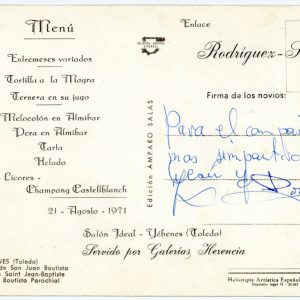 Menú
Entremeses variados
Tortilla a la Magra
Ternera en su jugo
Melocotón en Almíbar
Pera en Almíbar
Tarta
Helado
Licores -
Champang Castellblanch
21 - Agosto - 1971
Enlace
Rodríguez-S
Firma de los novios:
Para el
mas
y
Edición AMPARO SALAS
Salón Ideal - Yébenes (Toledo)
Servido por Galerías Herencia
NES (Toledo)
de San Juan Bautista
Saint Jean-Baptiste
Baptista Parochial
Heliotipia Artística Española